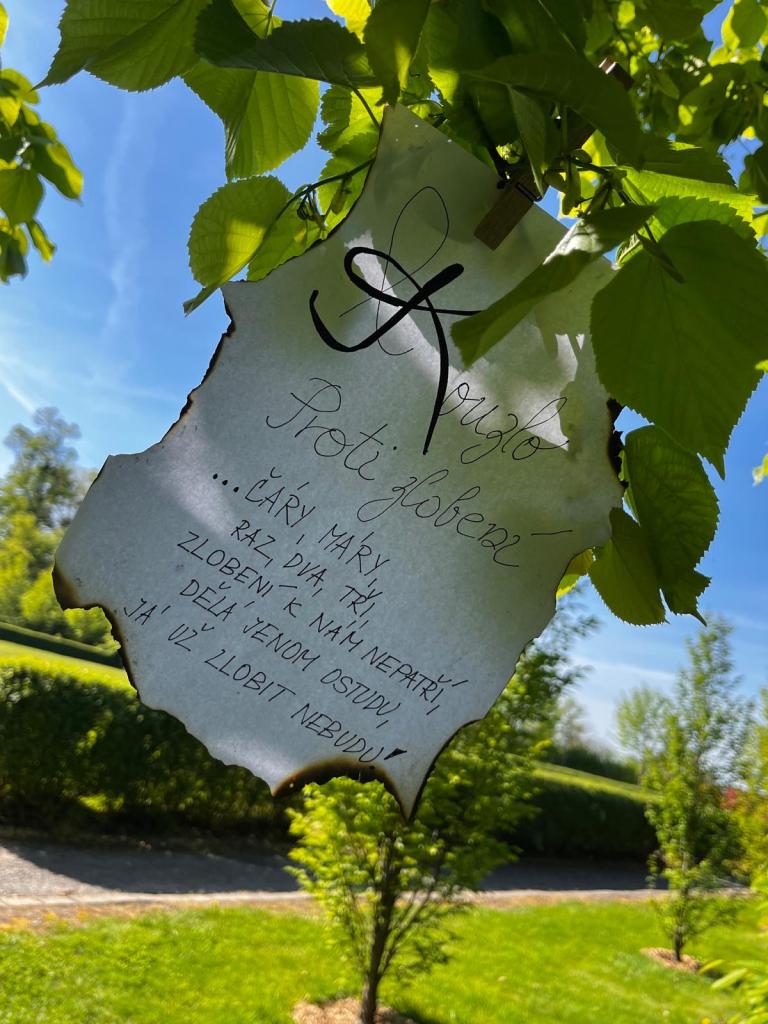 Kouzlo
Proti zlobení
...ČÁRY, MÁRY,
RAZ, DVA, TŘI,
ZLOBENÍ K NÁM NEPATŘÍ,
DĚLÁ JENOM OSTUDU,
JÁ UŽ ZLOBIT NEBUDU!